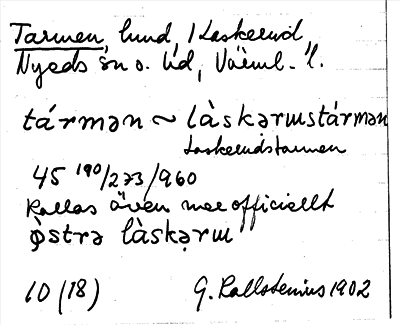 Tarmen, lund, i Laskerud,
Nyeds sn o. hd, Värml. l.
tármən ~ làskəɹɯstármən
Laskerudstarmen
45 190/273/960
Kallas även mer officiellt
ø̀strə làskəɹɯ
10 (18) G. Kallstenius 1902